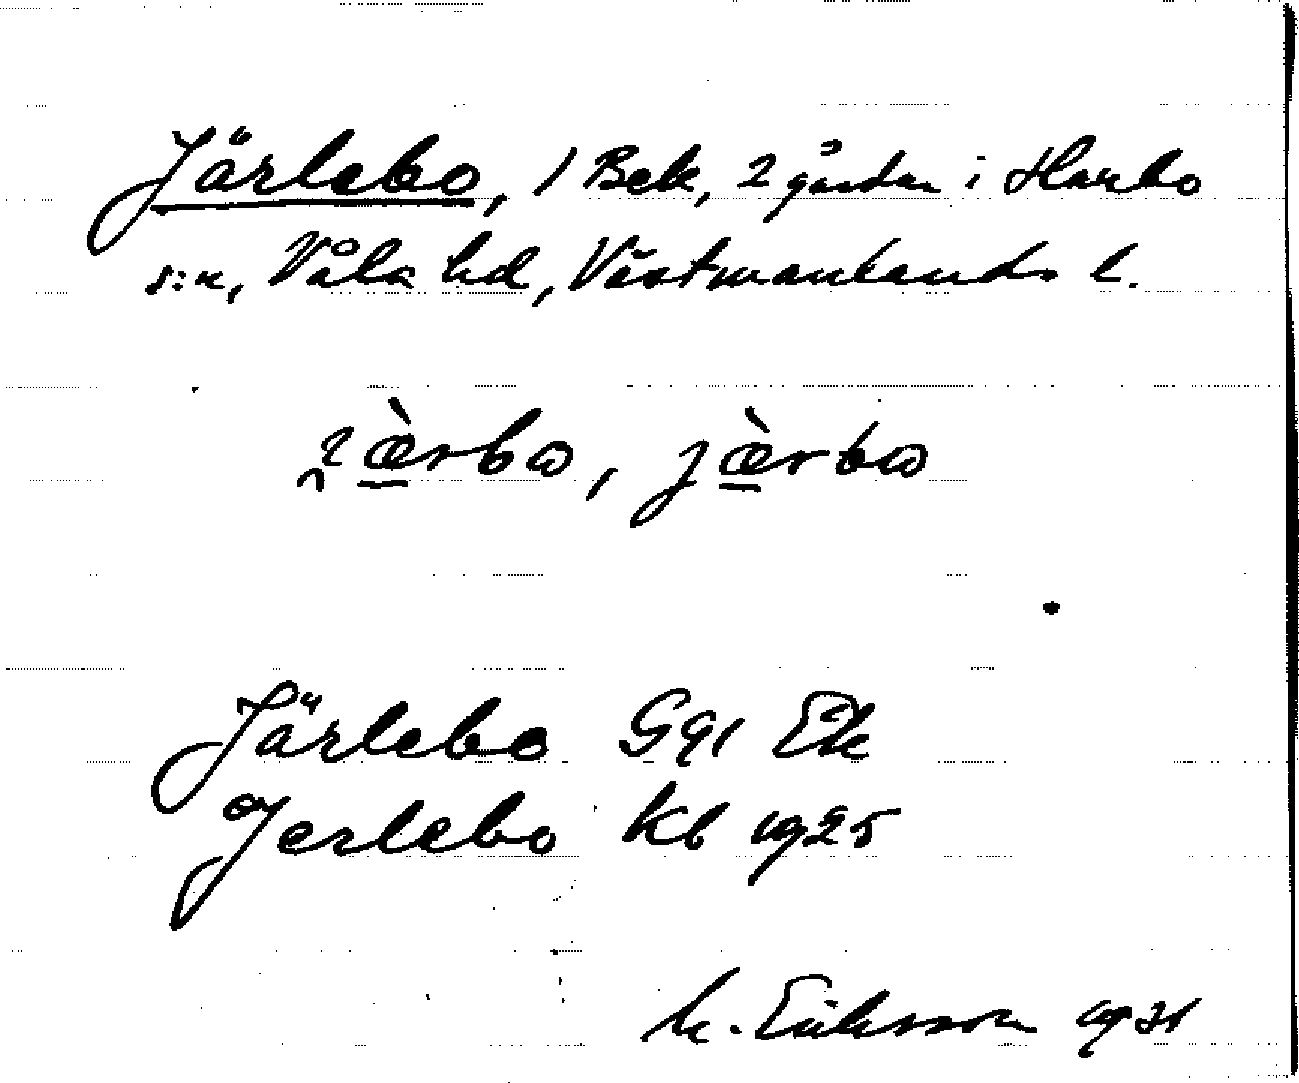 Järlebo, 1 Bek, 2 gårdar i Harbo
s:n, Våla hd, Västmanlands l.
jæ̀rbω, jæ̀rbω
Järlebo G91 Ek
Jerlebo Kb 1925
M. Eriksson 1931